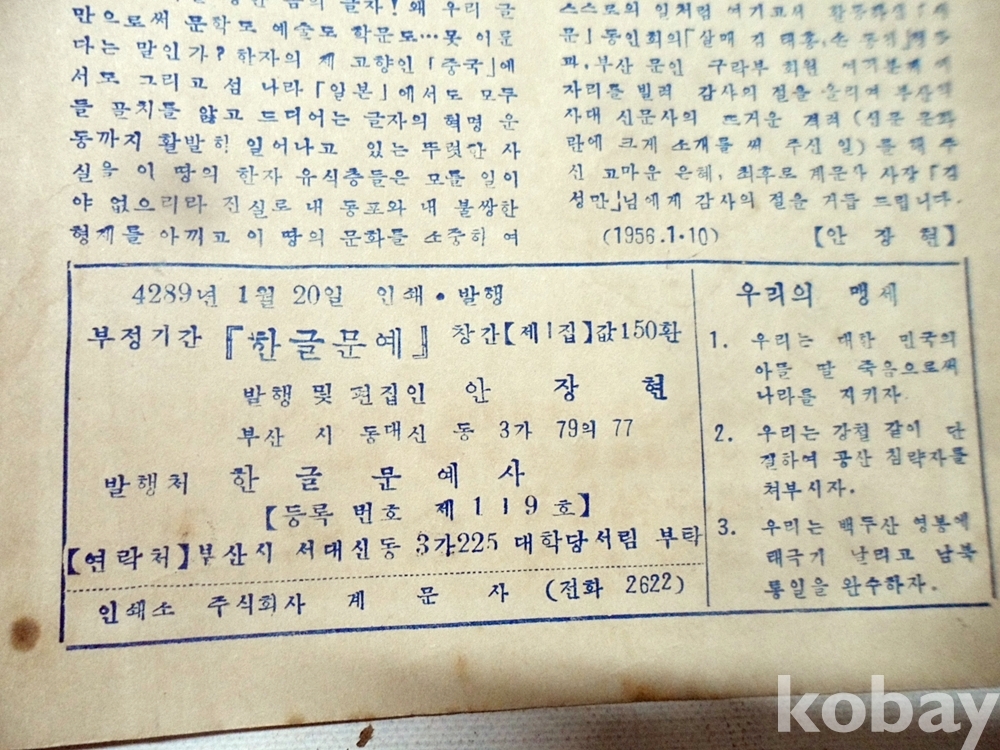 만으로써 문학도 예술도 학문도…못 이룬
다는 말인가? 한자의 제 고향인 「중국」에
서도 그리고 섬 나라 「일본」에서도 모두
들 골치를 앓고 드디어는 글자의 혁명 운
동까지 활발히 일어나고 있는 뚜렷한 사
실을 이 땅의 한자 유식층들은 모를 일이
야 없으리라 진실로 내 동포와 내 불쌍한
형제를 아끼고 이 땅의 문화를 소중히 여
스스로의 일처럼 여기고서
문」동인회의「살매 김 태홍,
파, 부산 문인 구락부 회원 여러분께 이
자리를 빌려 감사의 절을 올리며 부산의
사대 신문사의 뜨거운 격려 (신문 문화
란에 크게 소개를 써 주신 일) 를 해 주
신 고마운 은혜, 최후로 계문사 사장 「김
성만」님에게 감사의 절을 거듭 드립니다.
(1956.1·10) 【안 장 현】
4289년 1월 20일 인쇄·발행
부정기간 『한글문예』 창간【제1집】값150환
발행 및 편집인 안 장 현
부산 시 동대신 동 3가 79의 77
발행처 한 글 문 예 사
【등록 번호 제119호】
【연락처】부산시 서대신동 3가225 대학당서림 부탁
인쇄소 주식회사 계 문 사 (전화 2622)
우리의 맹세
1. 우리는 대한 민국의
아들 딸 죽음으로써
나라를 지키자.
2. 우리는 강철 같이 단
결하여 공산 침략자를
쳐부시자.
3. 우리는 백두산 영봉에
태극기 날리고 남북
통일을 완수하자.
kobay